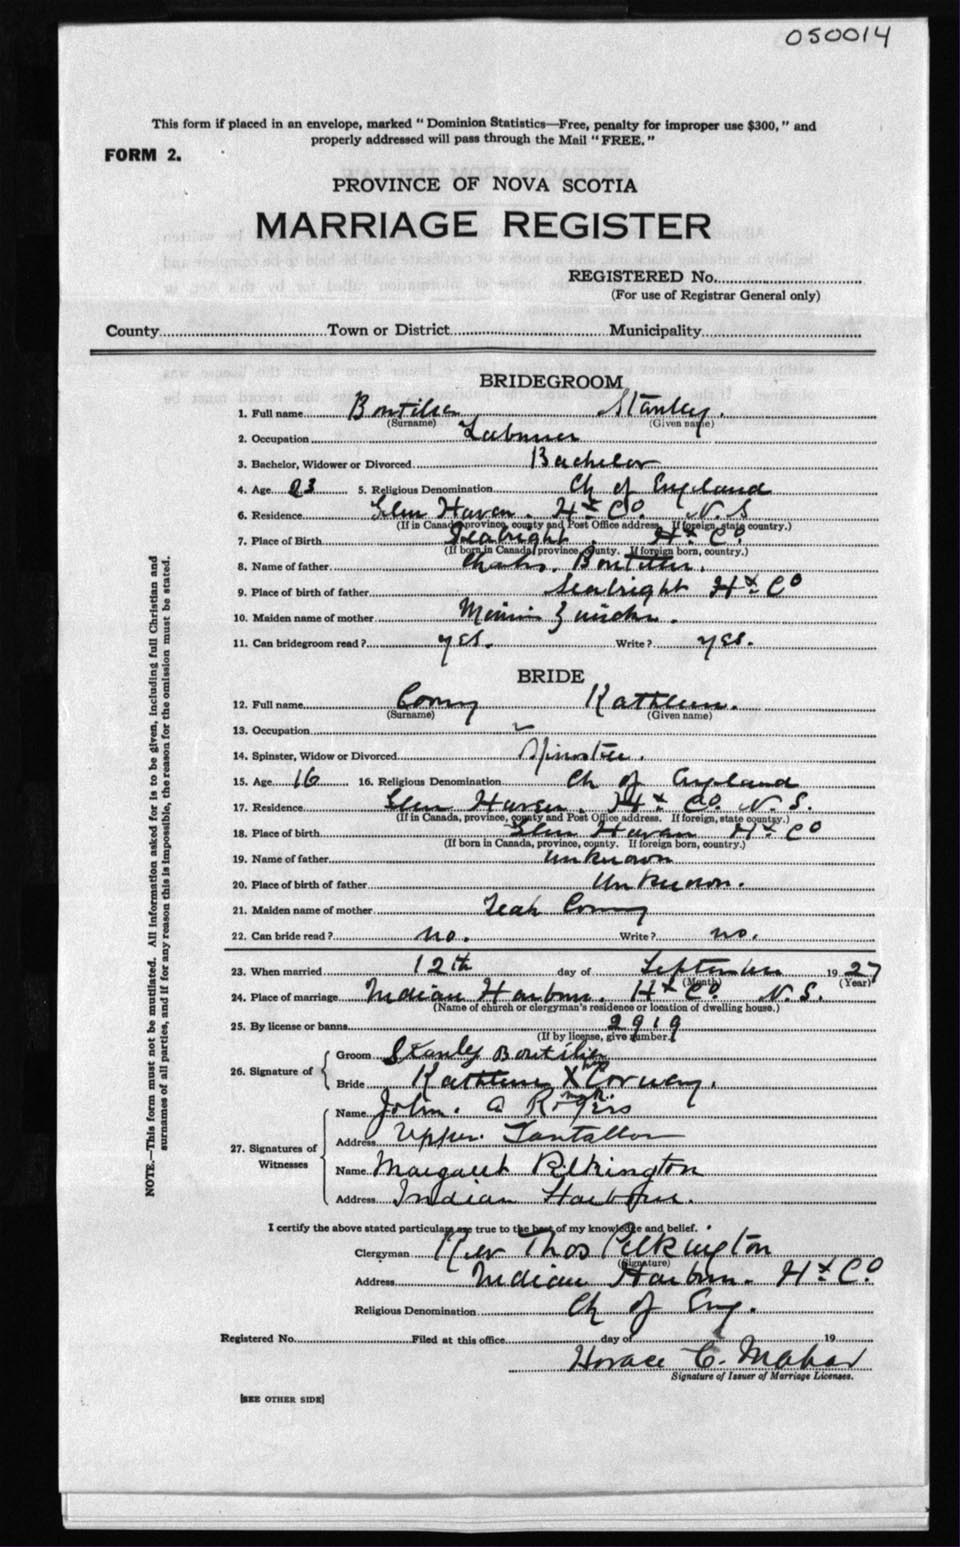 050014
This form if placed in an envelope, marked " Dominion Statistics—Free, penalty for improper use $300, " and
properly addressed will pass through the Mail " FREE. "
FORM 2.
PROVINCE OF NOVA SCOTIA
MARRIAGE REGISTER
REGISTERED No.
(For use of Registrar General only)
County Town or District Municipality
BRIDEGROOM
1. Full name Boutilier Stanley.
(Surname) (Given name)
2. Occupation Labourer
3. Bachelor, Widower or Divorced Bachelor
4. Age 23 5. Religious Denomination Ch of England
6. Residence Glen Haven. Hx Co. N. S
(If in Canada, province, county and Post Office address. If foreign, state country.)
7. Place of Birth Seabright. Hx Co
(If born in Canada, province, county. If foreign born, country.)
8. Name of father Boutilier.
9. Place of birth of father Seabright Hx Co
10. Maiden name of mother
11. Can bridegroom read ? yes. Write ? yes.
BRIDE
12. Full name Kathleen.
(Surname) (Given name)
13. Occupation
14. Spinster, Widow or Divorced Spinster.
15. Age 16 16. Religious Denomination Ch of England
17. Residence Glen Haven. Hx Co. N. S.
(If in Canada, province, county and Post Office address. If foreign, state country.)
18. Place of birth Glen Haven Hx Co
(If born in Canada, province, county. If foreign born, country.)
19. Name of father unknown
20. Place of birth of father Unknown.
21. Maiden name of mother Leah
22. Can bride read ? no. Write ? no.
23. When married 12th day of September 19 27
(Month) (Year)
24. Place of marriage Indian Harbour. Hx Co. N. S.
(Name of church or clergyman's residence or location of dwelling house.)
25. By license or banns 2919
(If by license, give number.)
26. Signature of
Groom Stanley Boutilier
her
Bride Kathleen X Corway.
mark.
27. Signatures of Witnesses
Name John. A Rogers
Address Upper. Tantallon
Name Margaret Pilkington
Address Indian Harbour.
I certify the above stated particulars are true to the best of my knowledge and belief.
Clergyman Rev Thos Pilkington
(Signature)
Address Indian Harbour. Hx Co
Religious Denomination Ch of Eng.
Registered No. Filed at this office day of 19
Horace C. Mahar
Signature of Issuer of Marriage Licenses.
[SEE OTHER SIDE]
NOTE.—This form must not be mutilated. All information asked for is to be given, including full Christian and
surnames of all parties, and if for any reason this is impossible, the reason for the omission must be stated.